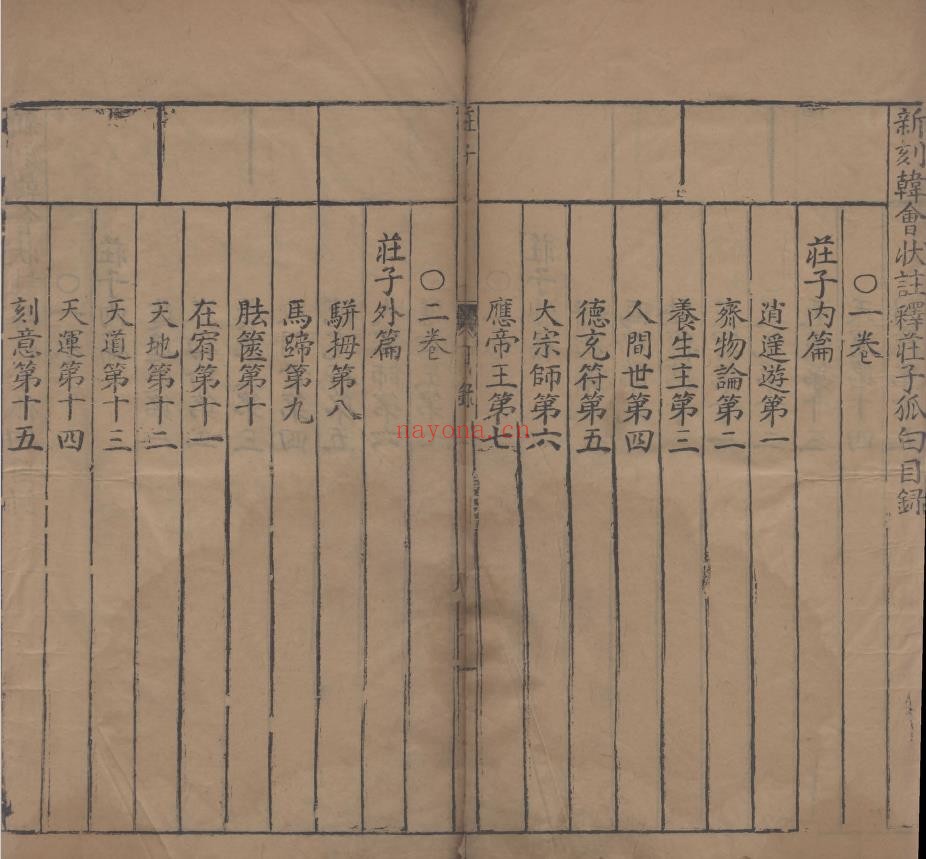 新刻韓會状註釋莊子狐白目録
〇一卷
莊子内篇
逍遥遊第一
齊物論第二
養生主第三
人間世第四
德充符第五
大宗師第六
應帝王第七
莊子
目録
〇二卷
莊子外篇
駢拇第八
馬蹄第九
胠篋第十
在宥第十一
天地第十二
天道第十三
天運第十四
刻意第十五
nayona.cn